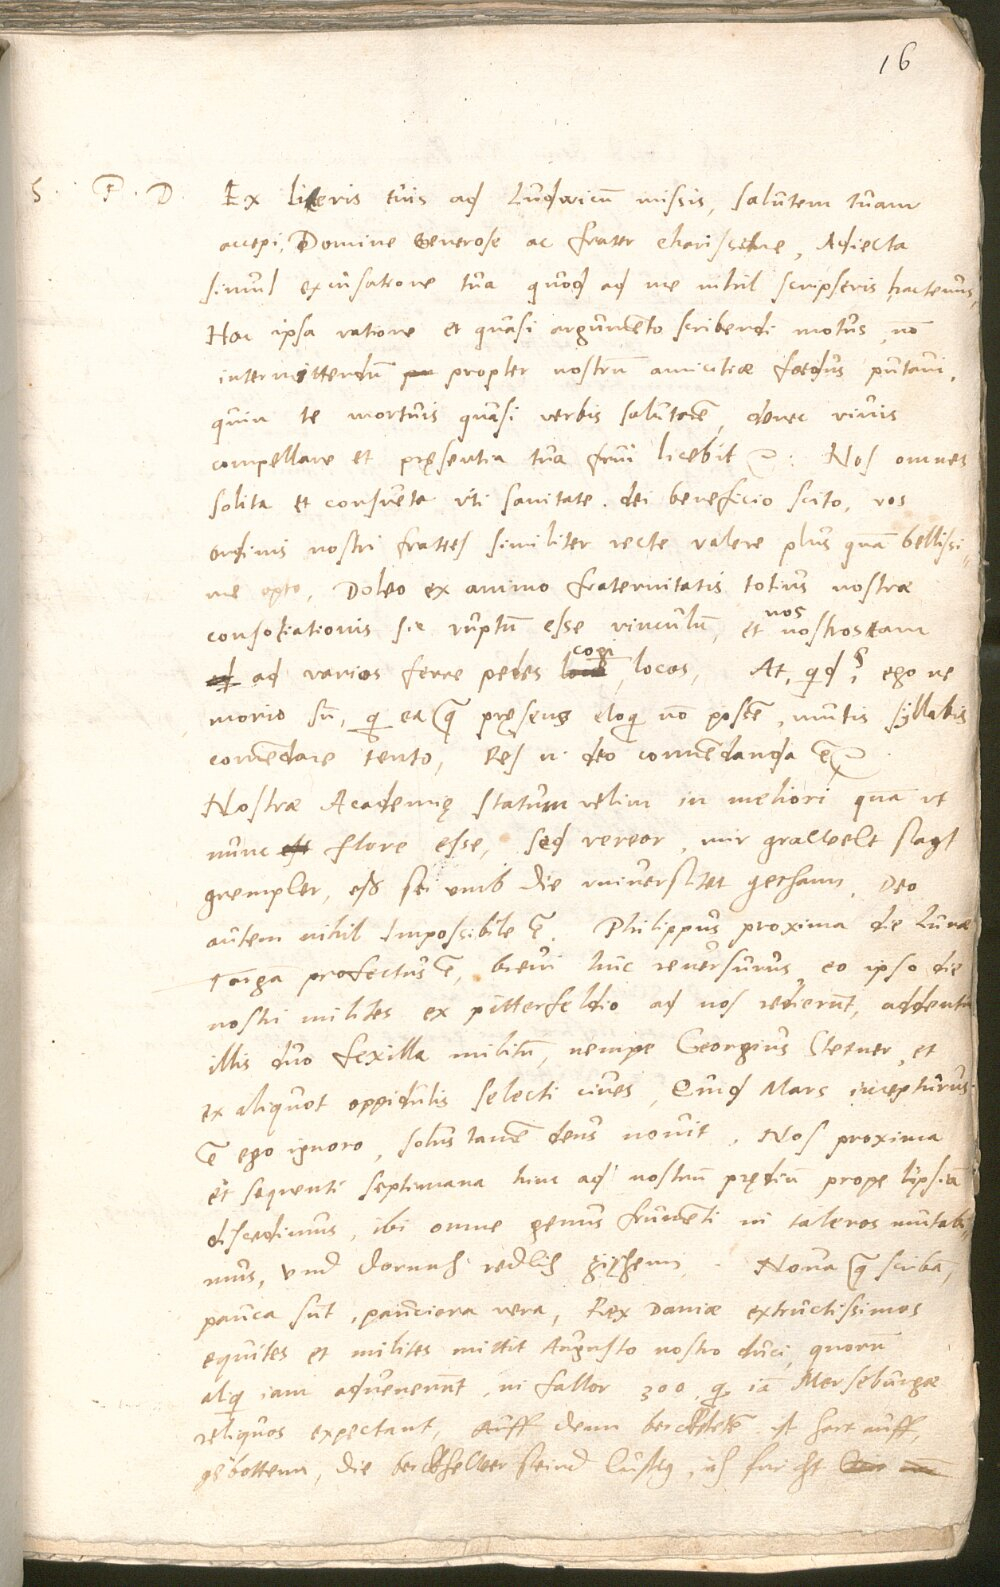 16
S. P. D. Ex literis tuis ad Ludovicū missis, salutem tuam
accepi, Domine Generose ac frater charissime, Adiecta
simul excusatione tua quod ad me nihil scripseris hactenus,
Hac ipsa ratione et quasi argumēto scribendi motus, nō
intermittendū propter nostrū amicitiæ fœdus putavi,
quin te mortuis quasi verbis salutarē, donec vivis
compellare et pręsentia tua frui licebit. Nos omnes
solita et consueta uti sanitate dei beneficio scito, vos
ordinis nostri fratres similiter recte valere plus quā bellissi=
me opto, Doleo ex animo fraternitatis totius nostræ
consociationis sic ruptū esse vinculū, et nos nostros tam
ad varios ferre pedes cogi locos, At, qid? ego ne
morio sū, q ea q pręsens eloq nō possē, mutis syllabis
comēdare tento, Res n. deo comēdanda ē.
Nostræ Academię statum velim in meliori quā ut
nunc flore esse, sed vereor, mir grawelt sagt
grempler, eß sei umb die universitet gethann, Deo
autem nihil Impossibile ē. Philippus proxima die Lunæ
Torga profectus ē, brevi huc reversurus, eo ipso die
nostri milites ex pitterfeldio ad nos redierūt, addentur
illis duo fexilla militū, nempe Georgius Sterner, et
ex aliquot oppidulis selecti cives, Quid Mars incepturus
ē ego ignoro, solus tamē deus novit, Nos proxima
et seqventi septimana hinc ad nostrū prędiū prope lipsiā
discedimus, ibi omne genus frumēti in taleros mutabi=
mus, und dornach redlich ziehenn. Nova q scribā,
pauca sūt, pauciora vera, Rex Daniæ extructissimos
equites et milites mittit Augusto nostro duci, quorū
aliq iam advenerūt, ni fallor 300, q iā Merseburgæ
reliquos expectant, Auff denn berckstetē ist hart auff
gebottenn, die berckhelter seind lustig, ich